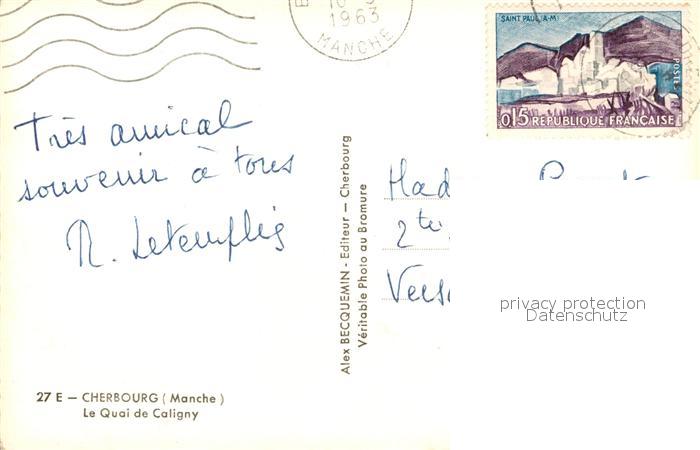 1963
MANCHE
SAINT PAUL (A-M)
POSTES
0,15 RÉPUBLIQUE FRANÇAISE
Très amical
souvenir à tous
Alex BECQUEMIN - Editeur — Cherbourg
Véritable Photo au Bromure
2 te
privacy protection
Datenschutz
27 E — CHERBOURG ( Manche )
Le Quai de Caligny